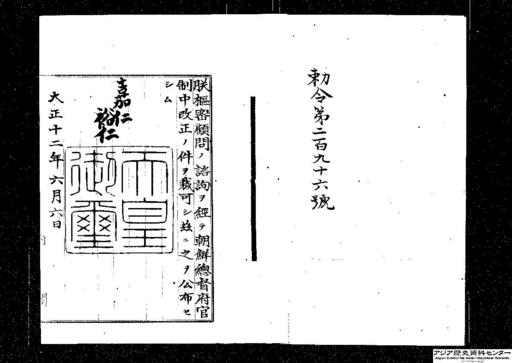 勅令第二百九十六號
朕樞密顧問ノ諮詢ヲ經テ朝鮮總督府官
制中改正ノ件ヲ裁可シ玆ニ之ヲ公布セ
シム
嘉仁
裕仁
天皇
御璽
大正十二年六月六日
アジア歴史資料センター
Japan Center for Asian Historical Records